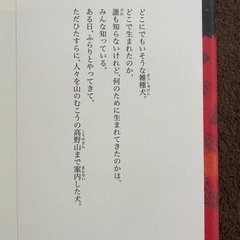 どこにでもいそうな雑種犬。
どこで生まれたのか、
誰も知らないけれど、何のために生まれてきたのかは、
みんな知っている。
ある日、ふらりとやってきて、
ただひたすらに、人々を山のむこうの高野山まで案内した犬。